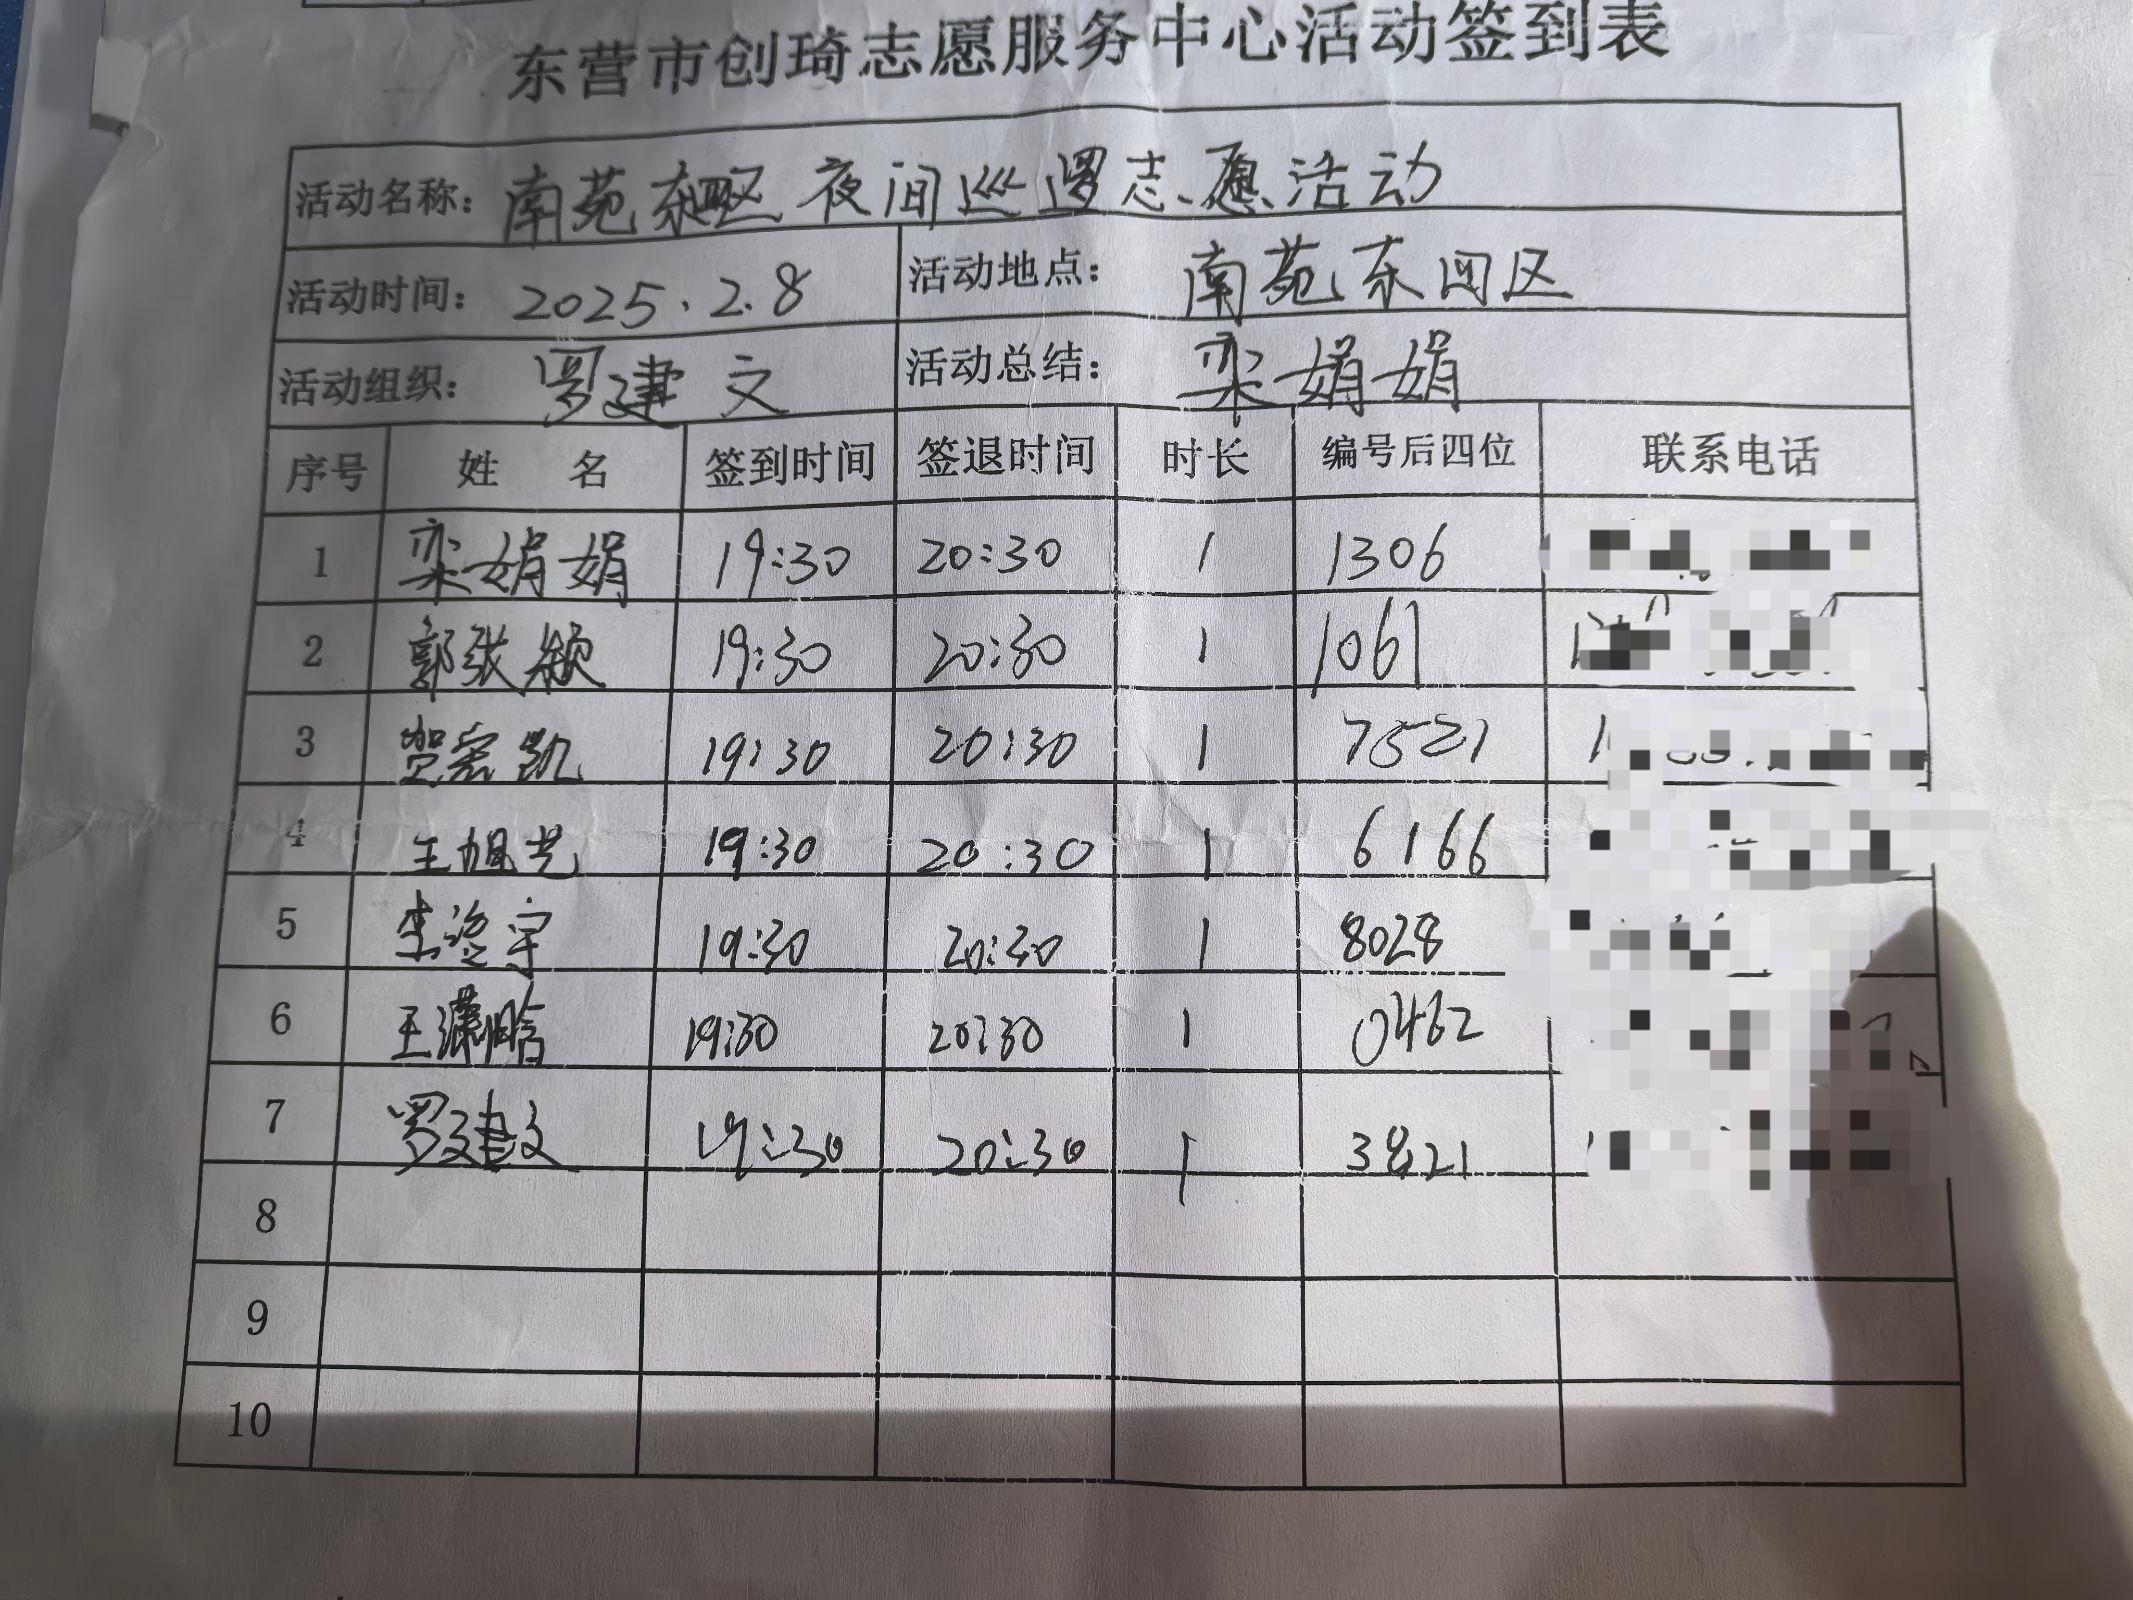 东营市创琦志愿服务中心活动签到表
活动名称: 南苑东四区夜间巡逻志愿活动
活动时间: 2025.2.8 活动地点: 南苑东四区
活动组织: 罗建文 活动总结: 栾娟娟
序号 姓 名 签到时间 签退时间 时长 编号后四位 联系电话
1 栾娟娟 19:30 20:30 1 1306
2 郭张颖 19:30 20:30 1 1061
3 贺宏凯 19:30 20:30 1 7521
4 王旭光 19:30 20:30 1 6166
5 李 宇 19:30 20:30 1 8028
6 王潇 19:30 20:30 1 0462
7 罗建文 19:30 20:30 1 3821
8
9
10